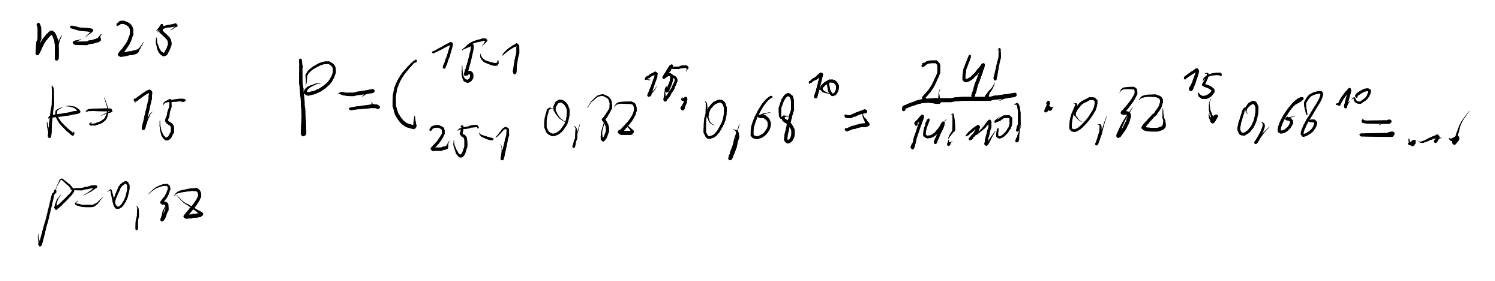 n=25
k=15
p=0,32
P=C^{15-1}_{25-1} 0,32^{15} · 0,68^{10} = \frac{24!}{14! 10!} · 0,32^{15} · 0,68^{10} = ...